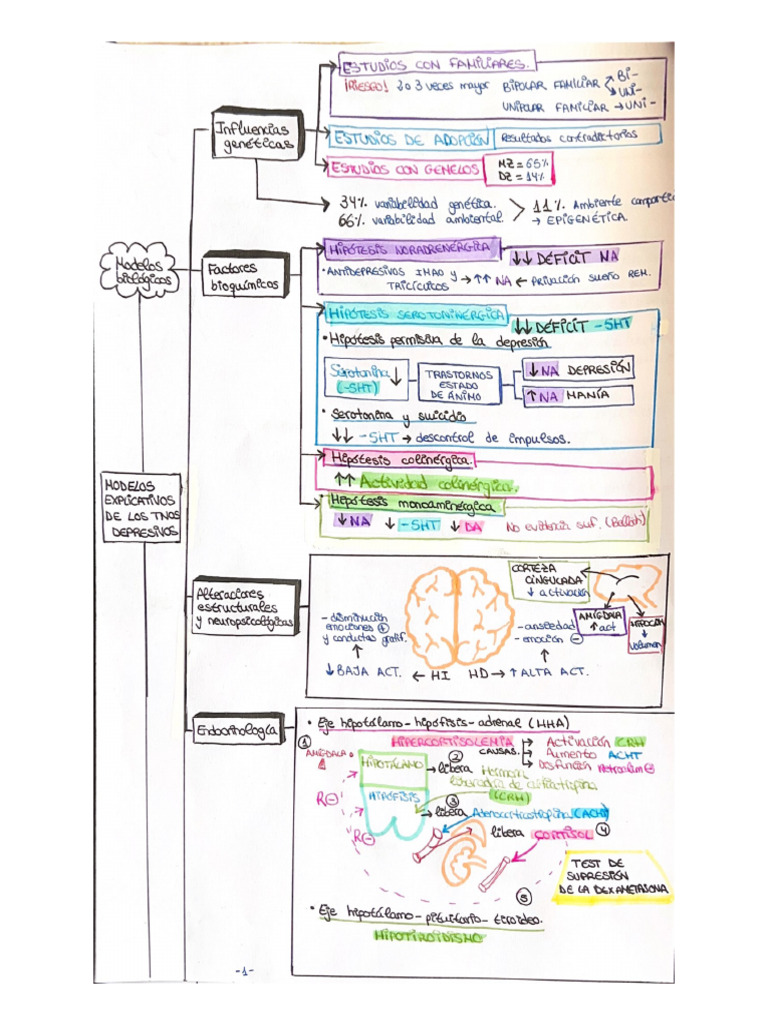 ESTUDIOS CON FAMILIARES.
¡RIESGO! 2 o 3 veces mayor BIPOLAR FAMILIAR BI-
UNI-
UNIPOLAR FAMILIAR → UNI-
Influencias
genéticas
ESTUDIOS DE ADOPCIÓN Resultados contradictorios
ESTUDIOS CON GEMELOS
MZ = 65%
DZ = 14%
34% variabilidad genética.
66% variabilidad ambiental.
11% Ambiente compartic
→ EPIGENÉTICA.
Modelos
biológicos
Factores
bioquímicos
HIPÓTESIS NORADRENÉRGICA
↓↓ DÉFICIT NA
• ANTIDEPRESIVOS IMAO y
TRICÍCLICOS → ↑↑ NA ← PRIVACIÓN SUEÑO REM.
HIPÓTESIS SEROTONINÉRGICA
↓↓ DÉFICIT -5HT
• Hipótesis permisiva de la depresión
Serotonina
(-5HT) ↓
TRASTORNOS
ESTADO
DE ÁNIMO
↓ NA DEPRESIÓN
↑ NA MANÍA
• Serotonina y suicidio
↓↓ -5HT → descontrol de impulsos.
Hipótesis colinérgica.
↑↑ Actividad colinérgica.
Hipótesis monoaminérgica
↓ NA ↓ -5HT ↓ DA No evidencia suf. (Belloch)
MODELOS
EXPLICATIVOS
DE LOS TNOS
DEPRESIVOS
Alteraciones
estructurales
y neuropsicológicas
CORTEZA
CINGULADA
↓ activación
AMÍGDALA
↑ act
HIPOCAM
↓
volumen
- disminución
emociones +
y conductas gratif.
↑
↓ BAJA ACT. ← HI
- ansiedad
- emoción -
↑
HD → ↑ ALTA ACT.
Endocrinología
• Eje hipotálamo-hipófisis-adrenal (HHA)
HIPERCORTISOLEMIA
CAUSAS.
→ Activación CRH
→ Aumento ACHT
→ Disfunción Retroalim -
1
AMÍGDALA
HIPOTÁLAMO
2
→ libera Hormona
liberadora de
(CRH)
R -
HIPÓFISIS
3
→ libera Adenocorticotropina (ACHT)
R -
libera CORTISOL 4
5
TEST DE
SUPRESIÓN
DE LA DEXAMETASONA
• Eje hipotálamo-pituitario-tiroideo.
HIPOTIROIDISMO
-1-